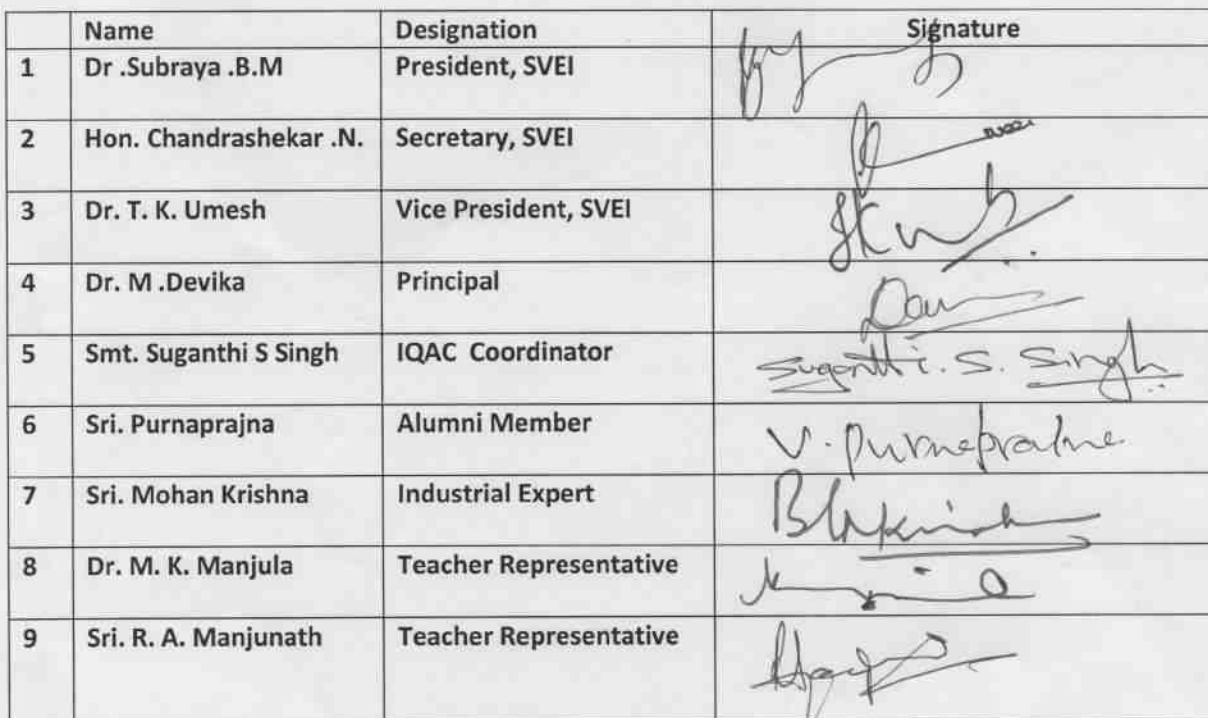 Name Designation Signature
1 Dr .Subraya .B.M President, SVEI
2 Hon. Chandrashekar .N. Secretary, SVEI
3 Dr. T. K. Umesh Vice President, SVEI
4 Dr. M .Devika Principal
5 Smt. Suganthi S Singh IQAC Coordinator Suganthi. S. Singh
6 Sri. Purnaprajna Alumni Member V. Purnaprajna
7 Sri. Mohan Krishna Industrial Expert
8 Dr. M. K. Manjula Teacher Representative
9 Sri. R. A. Manjunath Teacher Representative